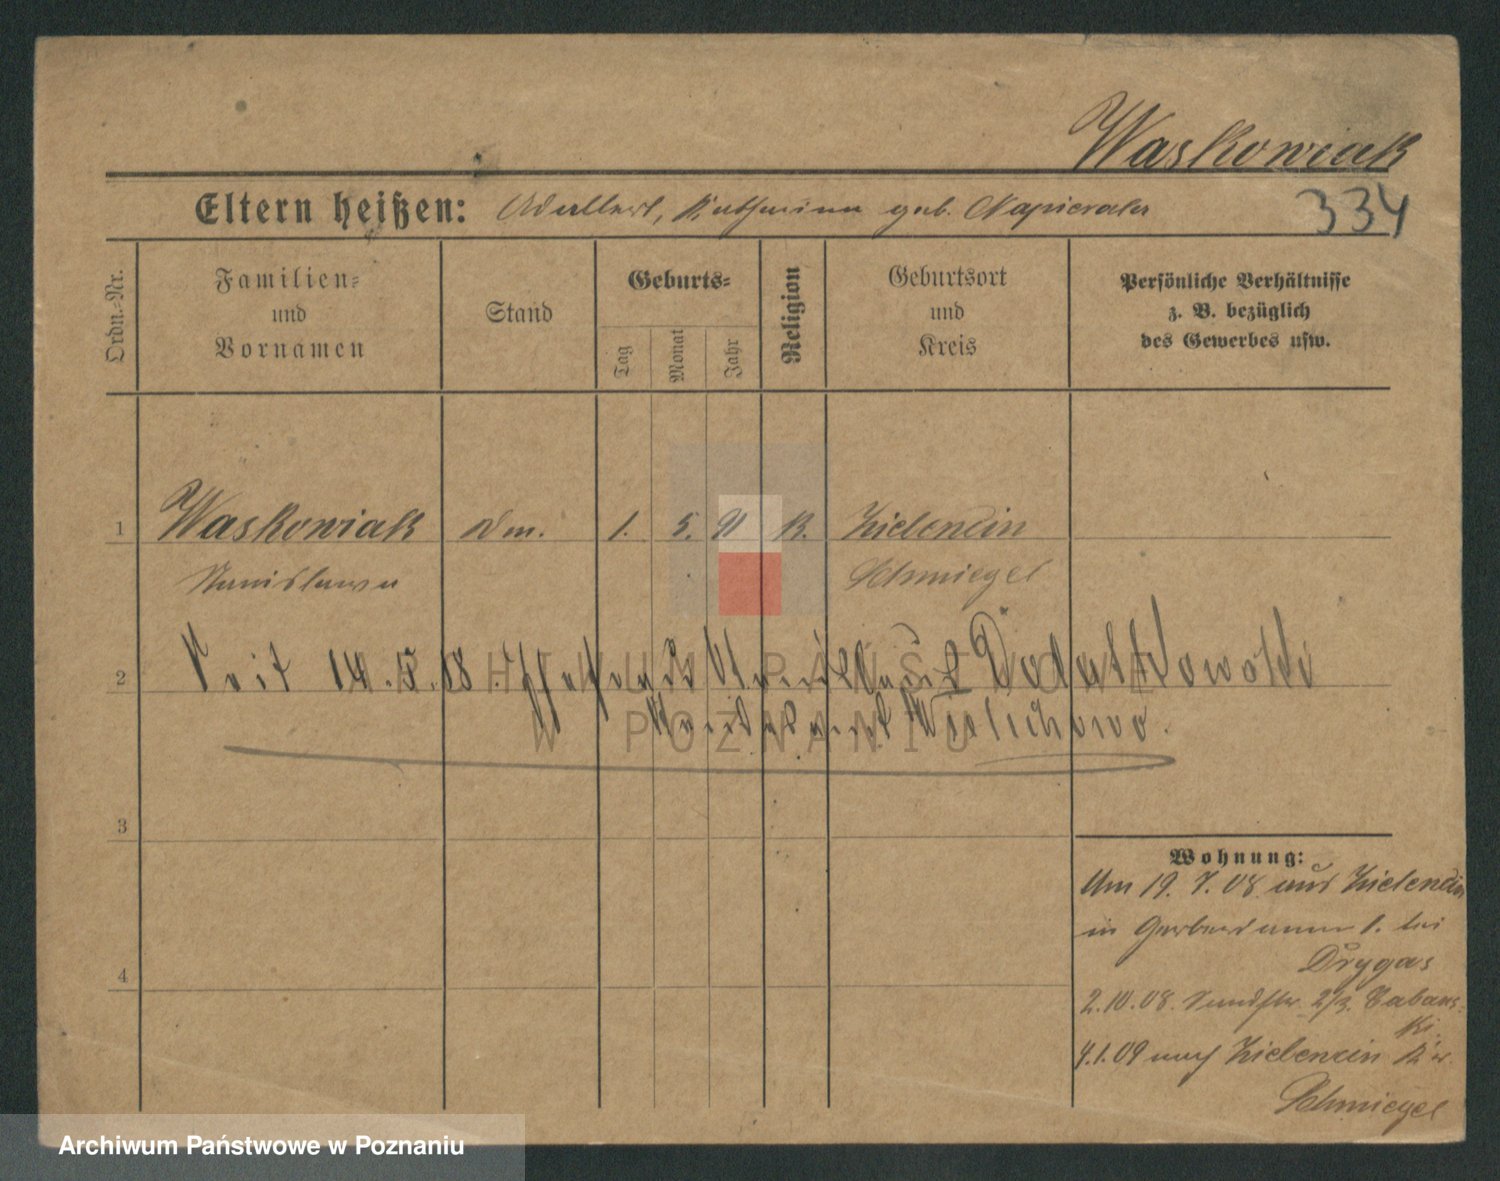 Waskowiak
Eltern heißen: Adalbert, Katharina geb. Napierala
334
Ordn.-Nr.
Familien-
und
Vornamen
Stand
Geburts-
Tag
Monat
Jahr
Religion
Geburtsort
und
Kreis
Persönliche Verhältnisse
z. B. bezüglich
des Gewerbes usw.
1 Waskowiak Dm. 1. 5. 91 K. Zielencin
Stanislawa Schmiegel
2 Seit 14.5.08
Wielichowo.
ARCHIWUM PAŃSTWOWE
W POZNANIU
3
Wohnung:
Am 19. 7. 08 aus Zielencin
in 1. bei
Drygas
4
2.10.08. 2/3. Cabans-
ki.
4.1.09 nach Zielencin Kr.
Schmiegel
Archiwum Państwowe w Poznaniu